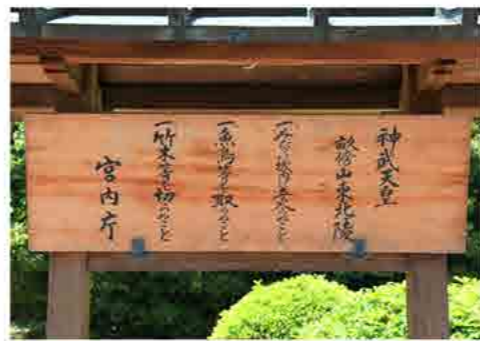 神武天皇
畝傍山東北陵
一みだりに域内に立入らぬこと
一魚鳥等を取らぬこと
一竹木等を切らぬこと
宮内庁